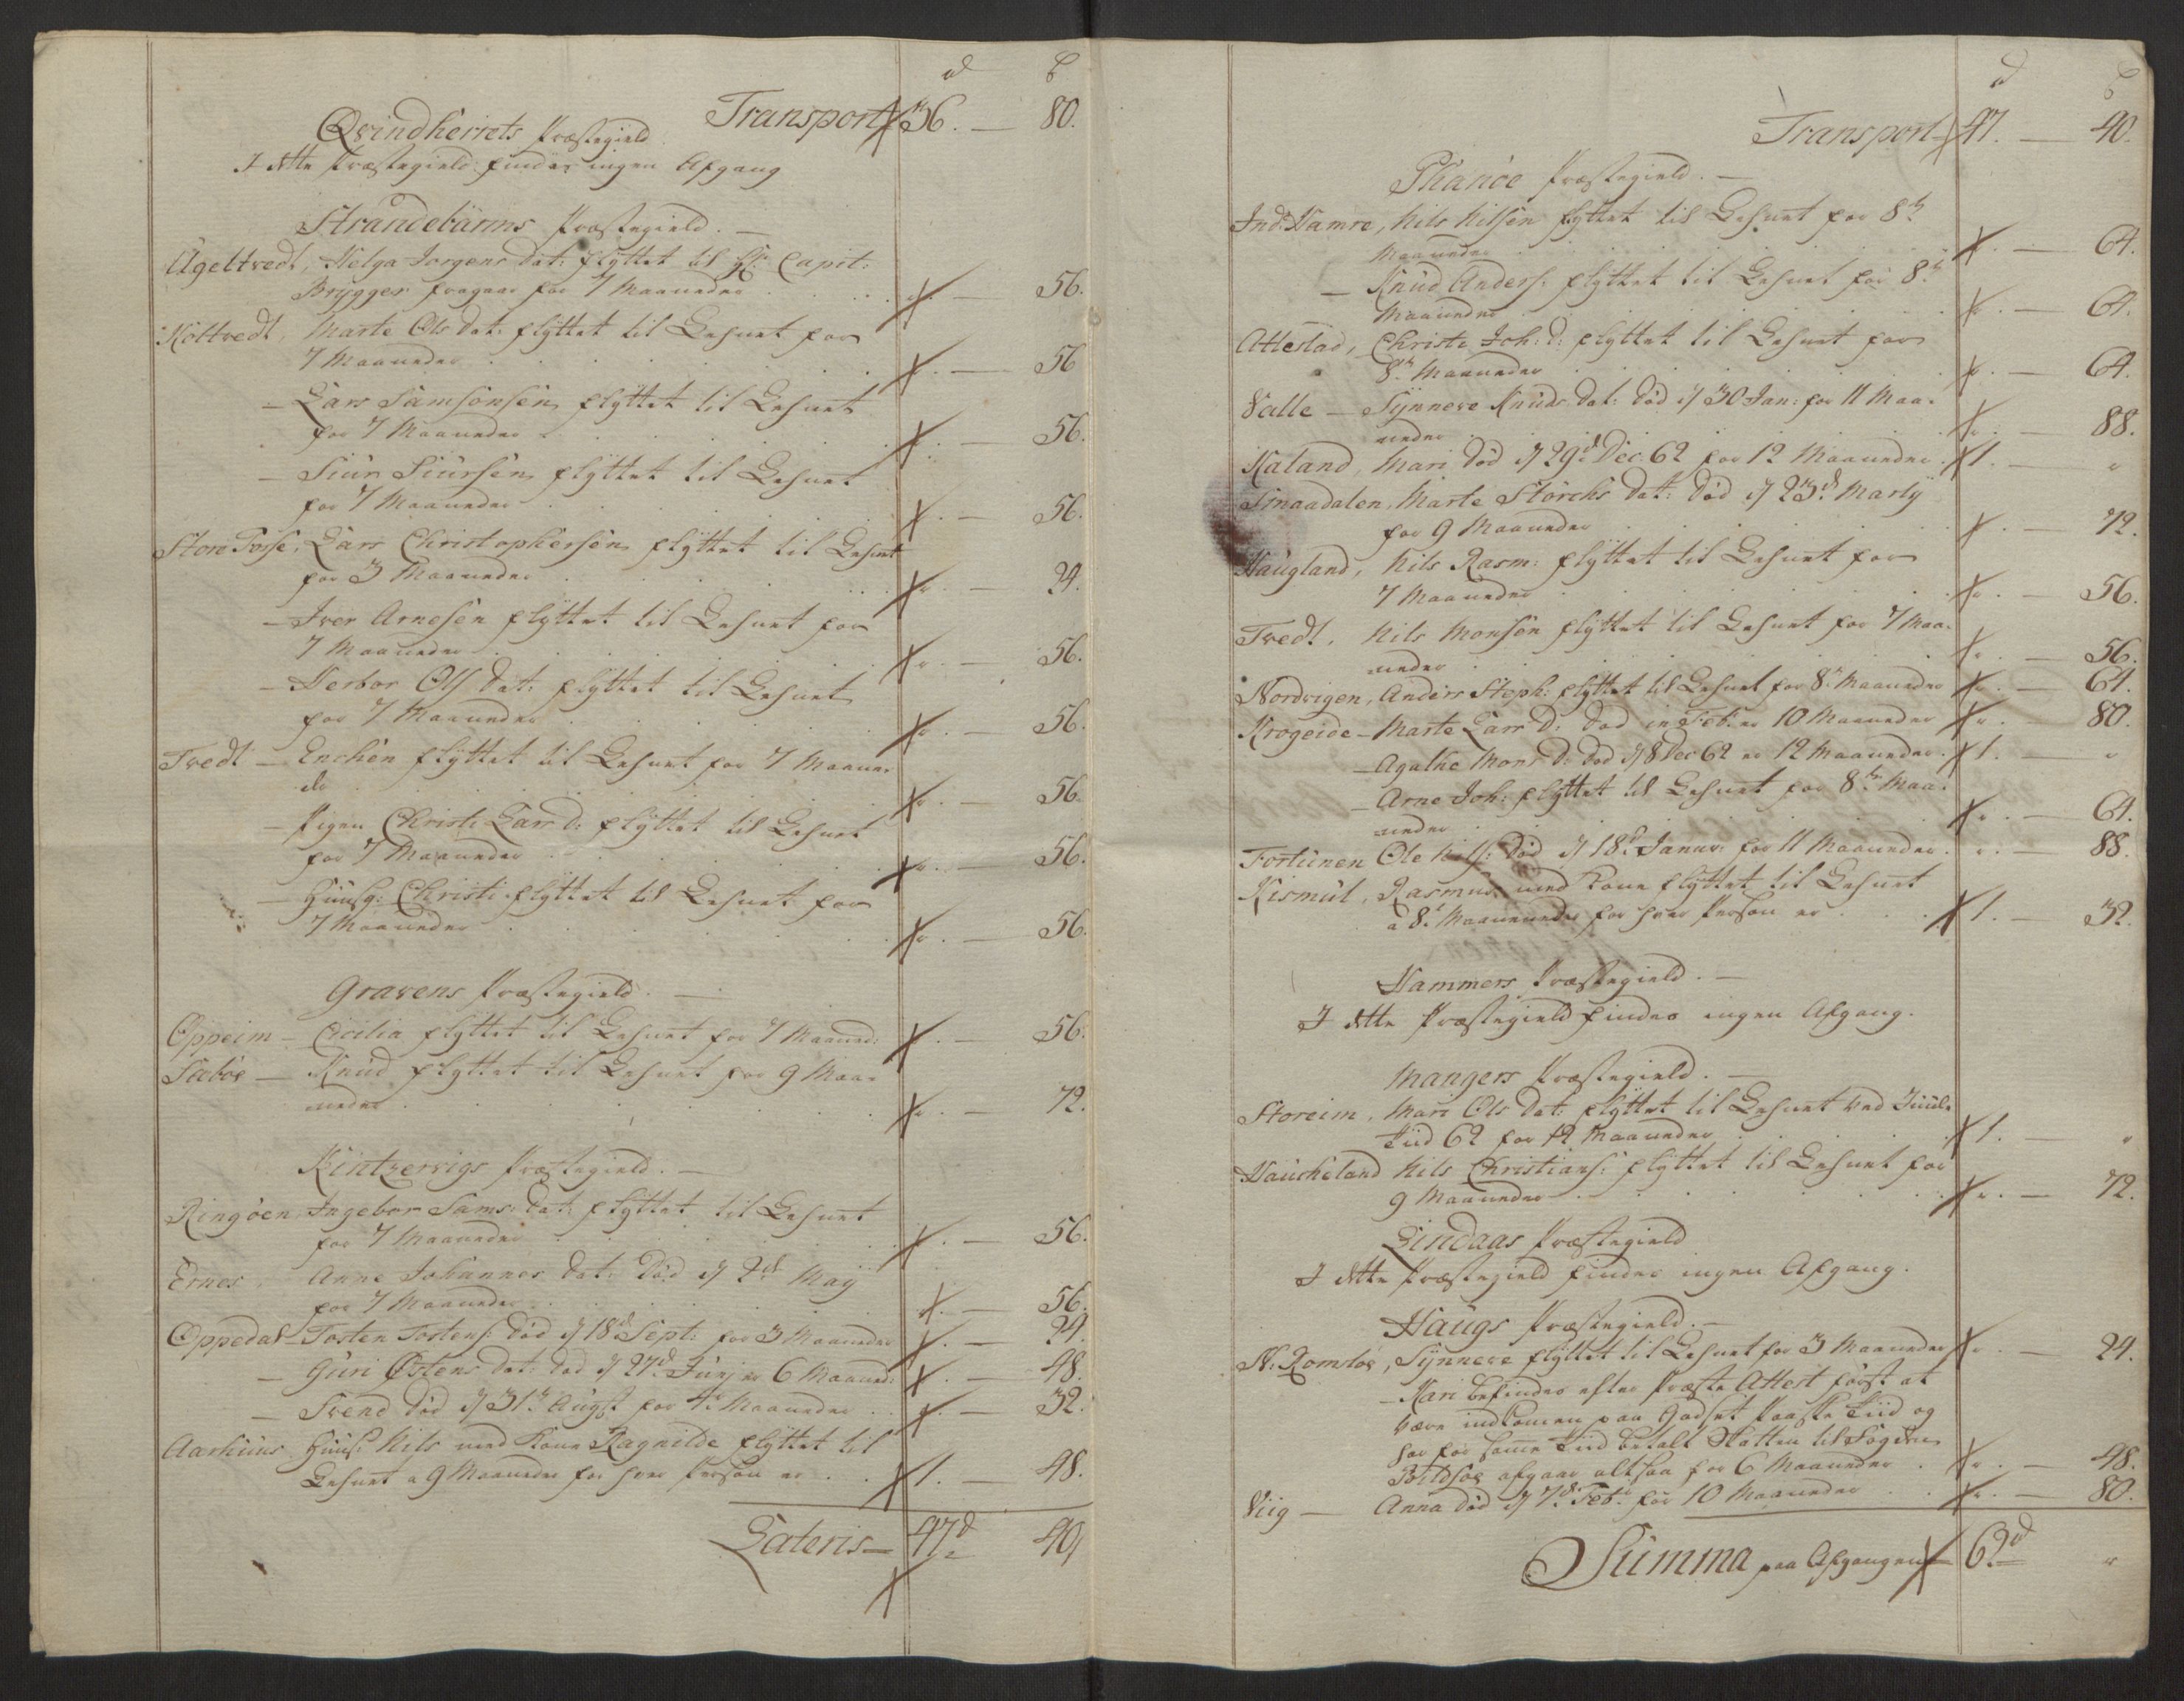 d ß
Transport 36. — 80.
Qvindherrets Præstegield
I dette Præstegield findes ingen Afgang
Strandebarms Præstegield. —
Ageltvedt, Helga Jørgens dat: flyttet til Hr: Capit:
Brygger fragaar for 7 Maaneder . . . " — 56.
Koltvedt, Marte Ols dat: flyttet til Lehnet for
7 Maaneder . . . — 56
— Lars Samsonsen flyttet til Lehnet
for 7 Maaneder . . . — 56.
— Siur Siursen flyttet til Lehnet
for 7 Maaneder . . . — 56.
Store Torse, Lars Christophersen flyttet til Lehnet
for 3 Maaneder . . . " — 24.
— Iver Arnesen flyttet til Lehnet for
7 Maaneder . . . " — 56.
— Herbor Ols dat: flyttet til Lehnet
for 7 Maaneder . . . " — 56.
Tvedt — Enchen flyttet til Lehnet for 7 Maane-
de . . . " — 56.
— Pigen Christi Lars d: flyttet til Lehnet
for 7 Maaneder . . . " — 56.
— Huusq: Christi flyttet til Lehnet for
7 Maaneder . . . " — 56.
Gravens Præstegield. —
Oppeim — Cicilia flyttet til Lehnet for 7 Maaned: — 56.
Sæbøe — Knud flyttet til Lehnet for 9 Maa-
neder . . . " — 72.
Kintzervigs Præstegield. —
Ringøen, Ingebor Sams: dat: flyttet til Lehnet
for 7 Maaneder . . . — 56.
Ernes, Anne Johannes dat: død d 2d Maÿ
for 7 Maaneder . . . — 56.
Oppedal — Tosten Tostens: død d 18d Sept: for 3 Maaneder — 24.
— Guri Østens dat: død d 27d Junj er 6 Maaned: — 48.
— Svend død d 31te Augst for 4re Maaneder . . — 32.
Aarhuus, Huus: Nils med Kone Ragnilde flyttet til
Lehnet a 9 Maaneder for hver Person er . . 1. — 48.
Lateris — 47d 40
d ß
Transport 47. — 40.
Phanøe Præstegield. —
Ind: Hamre, Nils Nilsen flyttet til Lehnet for 8te
Maaneder . . . — 64.
— Knud Anders: flyttet til Lehnet for 8te
Maaneder . . . " — 64.
Attestad, Christi Joh: d: flyttet til Lehnet for
8te Maaneder . . . " — 64.
Valle — Synneve Knuds dat: død d 30 Jan: for 11 Maa-
neder . . . " — 88.
Kaland, Mari død d 29d Dec: 62 for 12 Maaneder 1. — "
Smaadalen, Marte Storchs dat: død d 23d Martÿ
for 9 Maaneder . . . — 72.
Haugland, Nils Rasm: flyttet til Lehnet for
7 Maaneder . . . " — 56.
Tvedt, Nils Monsen flyttet til Lehnet for 7 Maa-
neder . . . " — 56.
Nordvigen, Anders Steph: flyttet til Lehnet for 8te Maaneder " — 64.
Krogeide — Marte Lars D: død in Feb: er 10 Maaneder " — 80.
— Agathe Mons D: død d 8 Dec 62 er 12 Maaneder 1. — "
— Arne Joh: flyttet til Lehnet for 8te Maa-
neder . . . " — 64.
Fortunen Ole Nils: død d 18d Januar: for 11 Maaneder . " — 88.
Kismul, Rasmus med Kone flyttet til Lehnet
a 8te Maaneneder for hver Person er . . . 1. — 32.
Hammers Præstegield. —
I dette Præstegield findes ingen Afgang.
Mangers Præstegield. —
Storeim, Mari Ols dat: flyttet til Lehnet ved Juule
Tiid 62 for 12 Maaneder . . . 1. — "
Haucheland Nils Christians: flyttet til Lehnet for
9 Maaneder . . . " — 72.
Lindaas Præstegield
I dette Præstegield findes ingen Afgang.
Haugs Præstegield. —
N: Romsloe, Synneve flyttet til Lehnet for 3 Maaneder " — 24.
— Kari befindes efter Præste Attest først at
være indkommen paa Godset Paaske Tiid og
har for samme Tiid betalt Skatten til Fogden
Bildsøe afgaar altsaa for 6 Maaneder . " — 48.
Viig — Anna død d 7d Feb: for 10 Maaneder . . " — 80.
Summa paa Afgangen 62d "